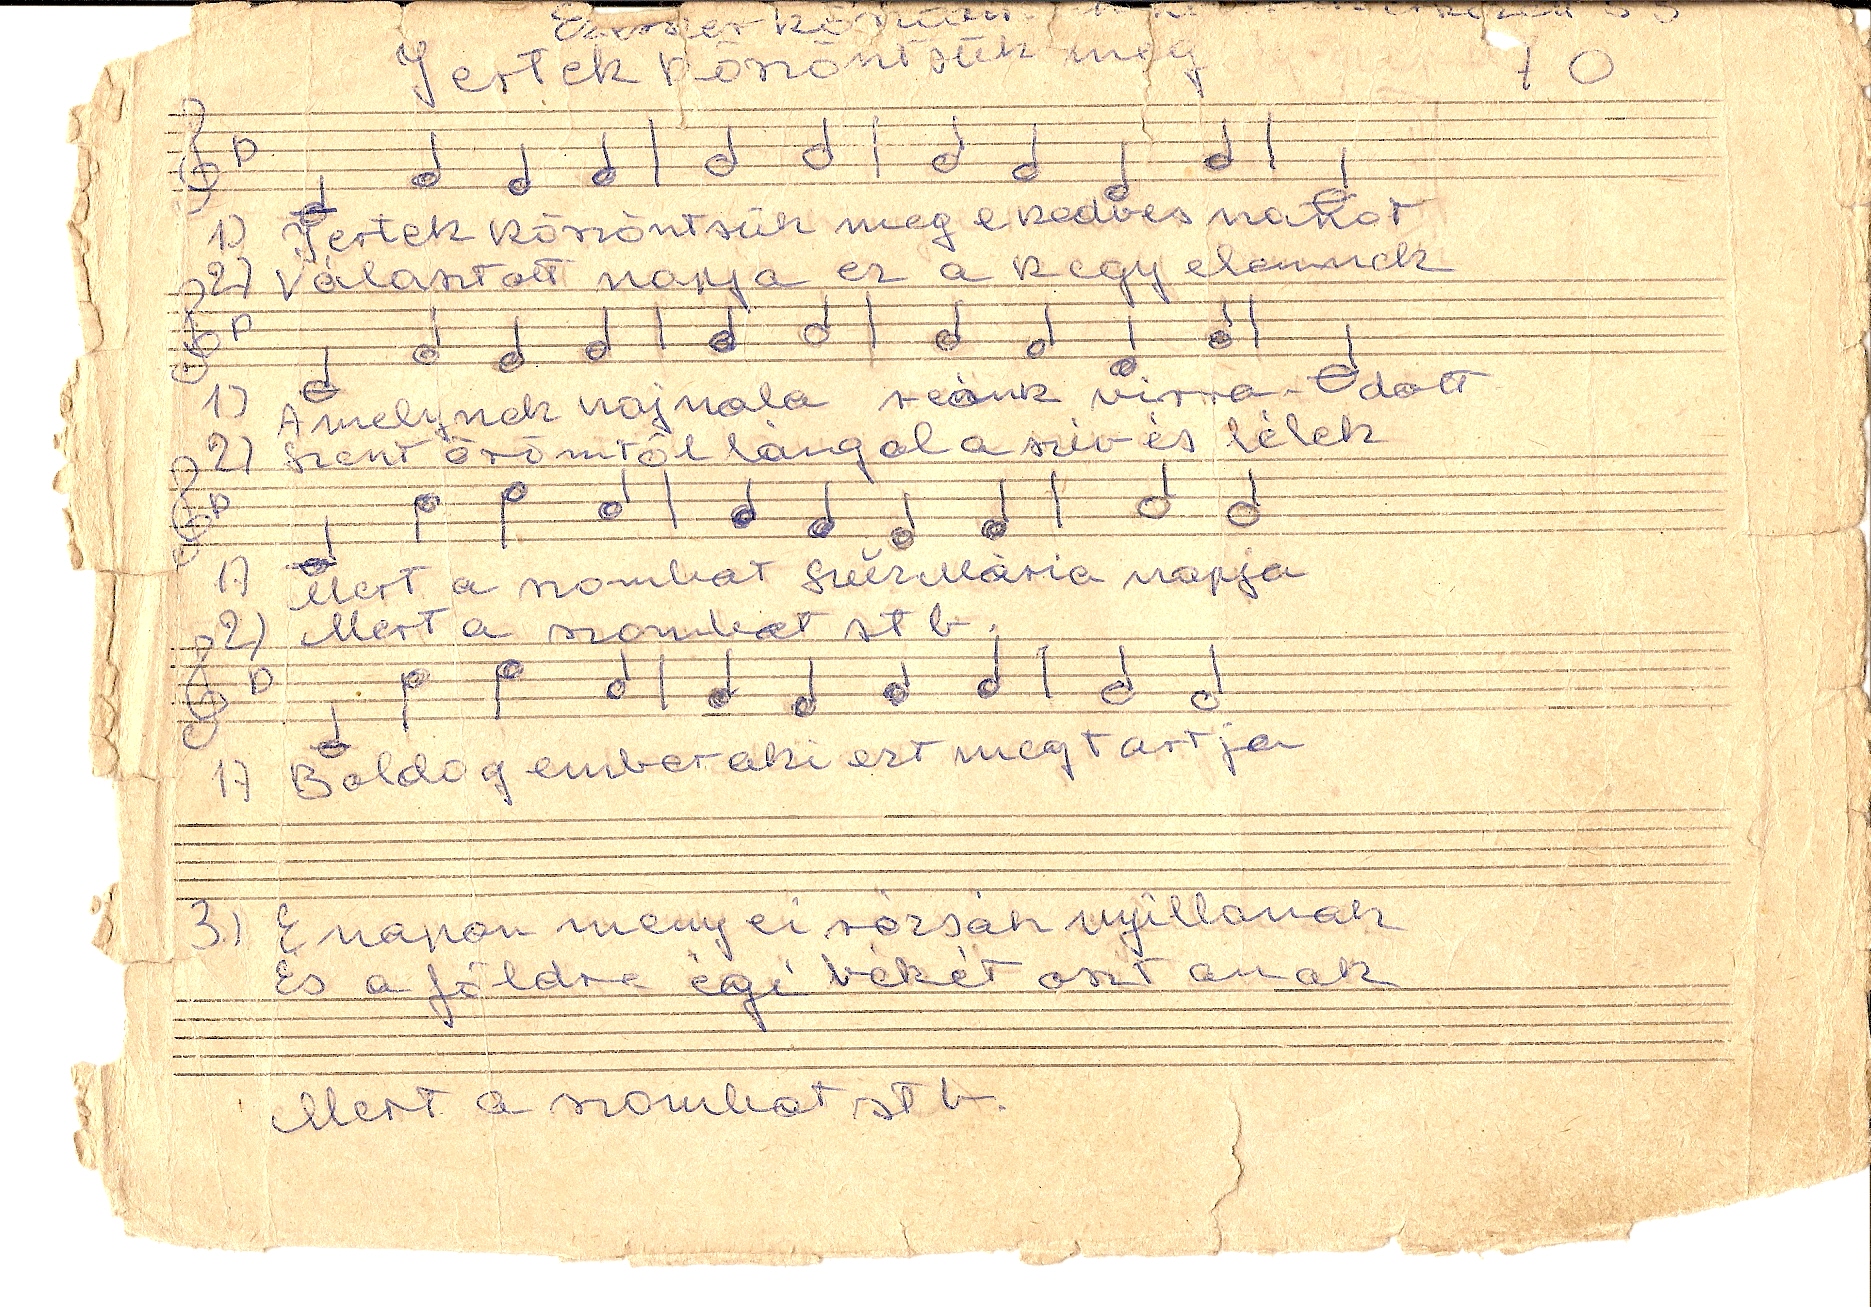 Jertek köszöntsük meg 70
1) Jertek köszöntsük meg e kedves napot
2) Választott napja ez a kegyelemnek
1) Amelynek hajnala reánk virra-dott
2) Szent örömtől lángol a sziv és lélek
1) Mert a szombat Szűz Mária napja
2) Mert a szombat stb.
1) Boldog ember aki ezt megtartja
3) E napon menyei rózsák nyillanak
És a földre égi békét osztanak
Mert a szombat stb.